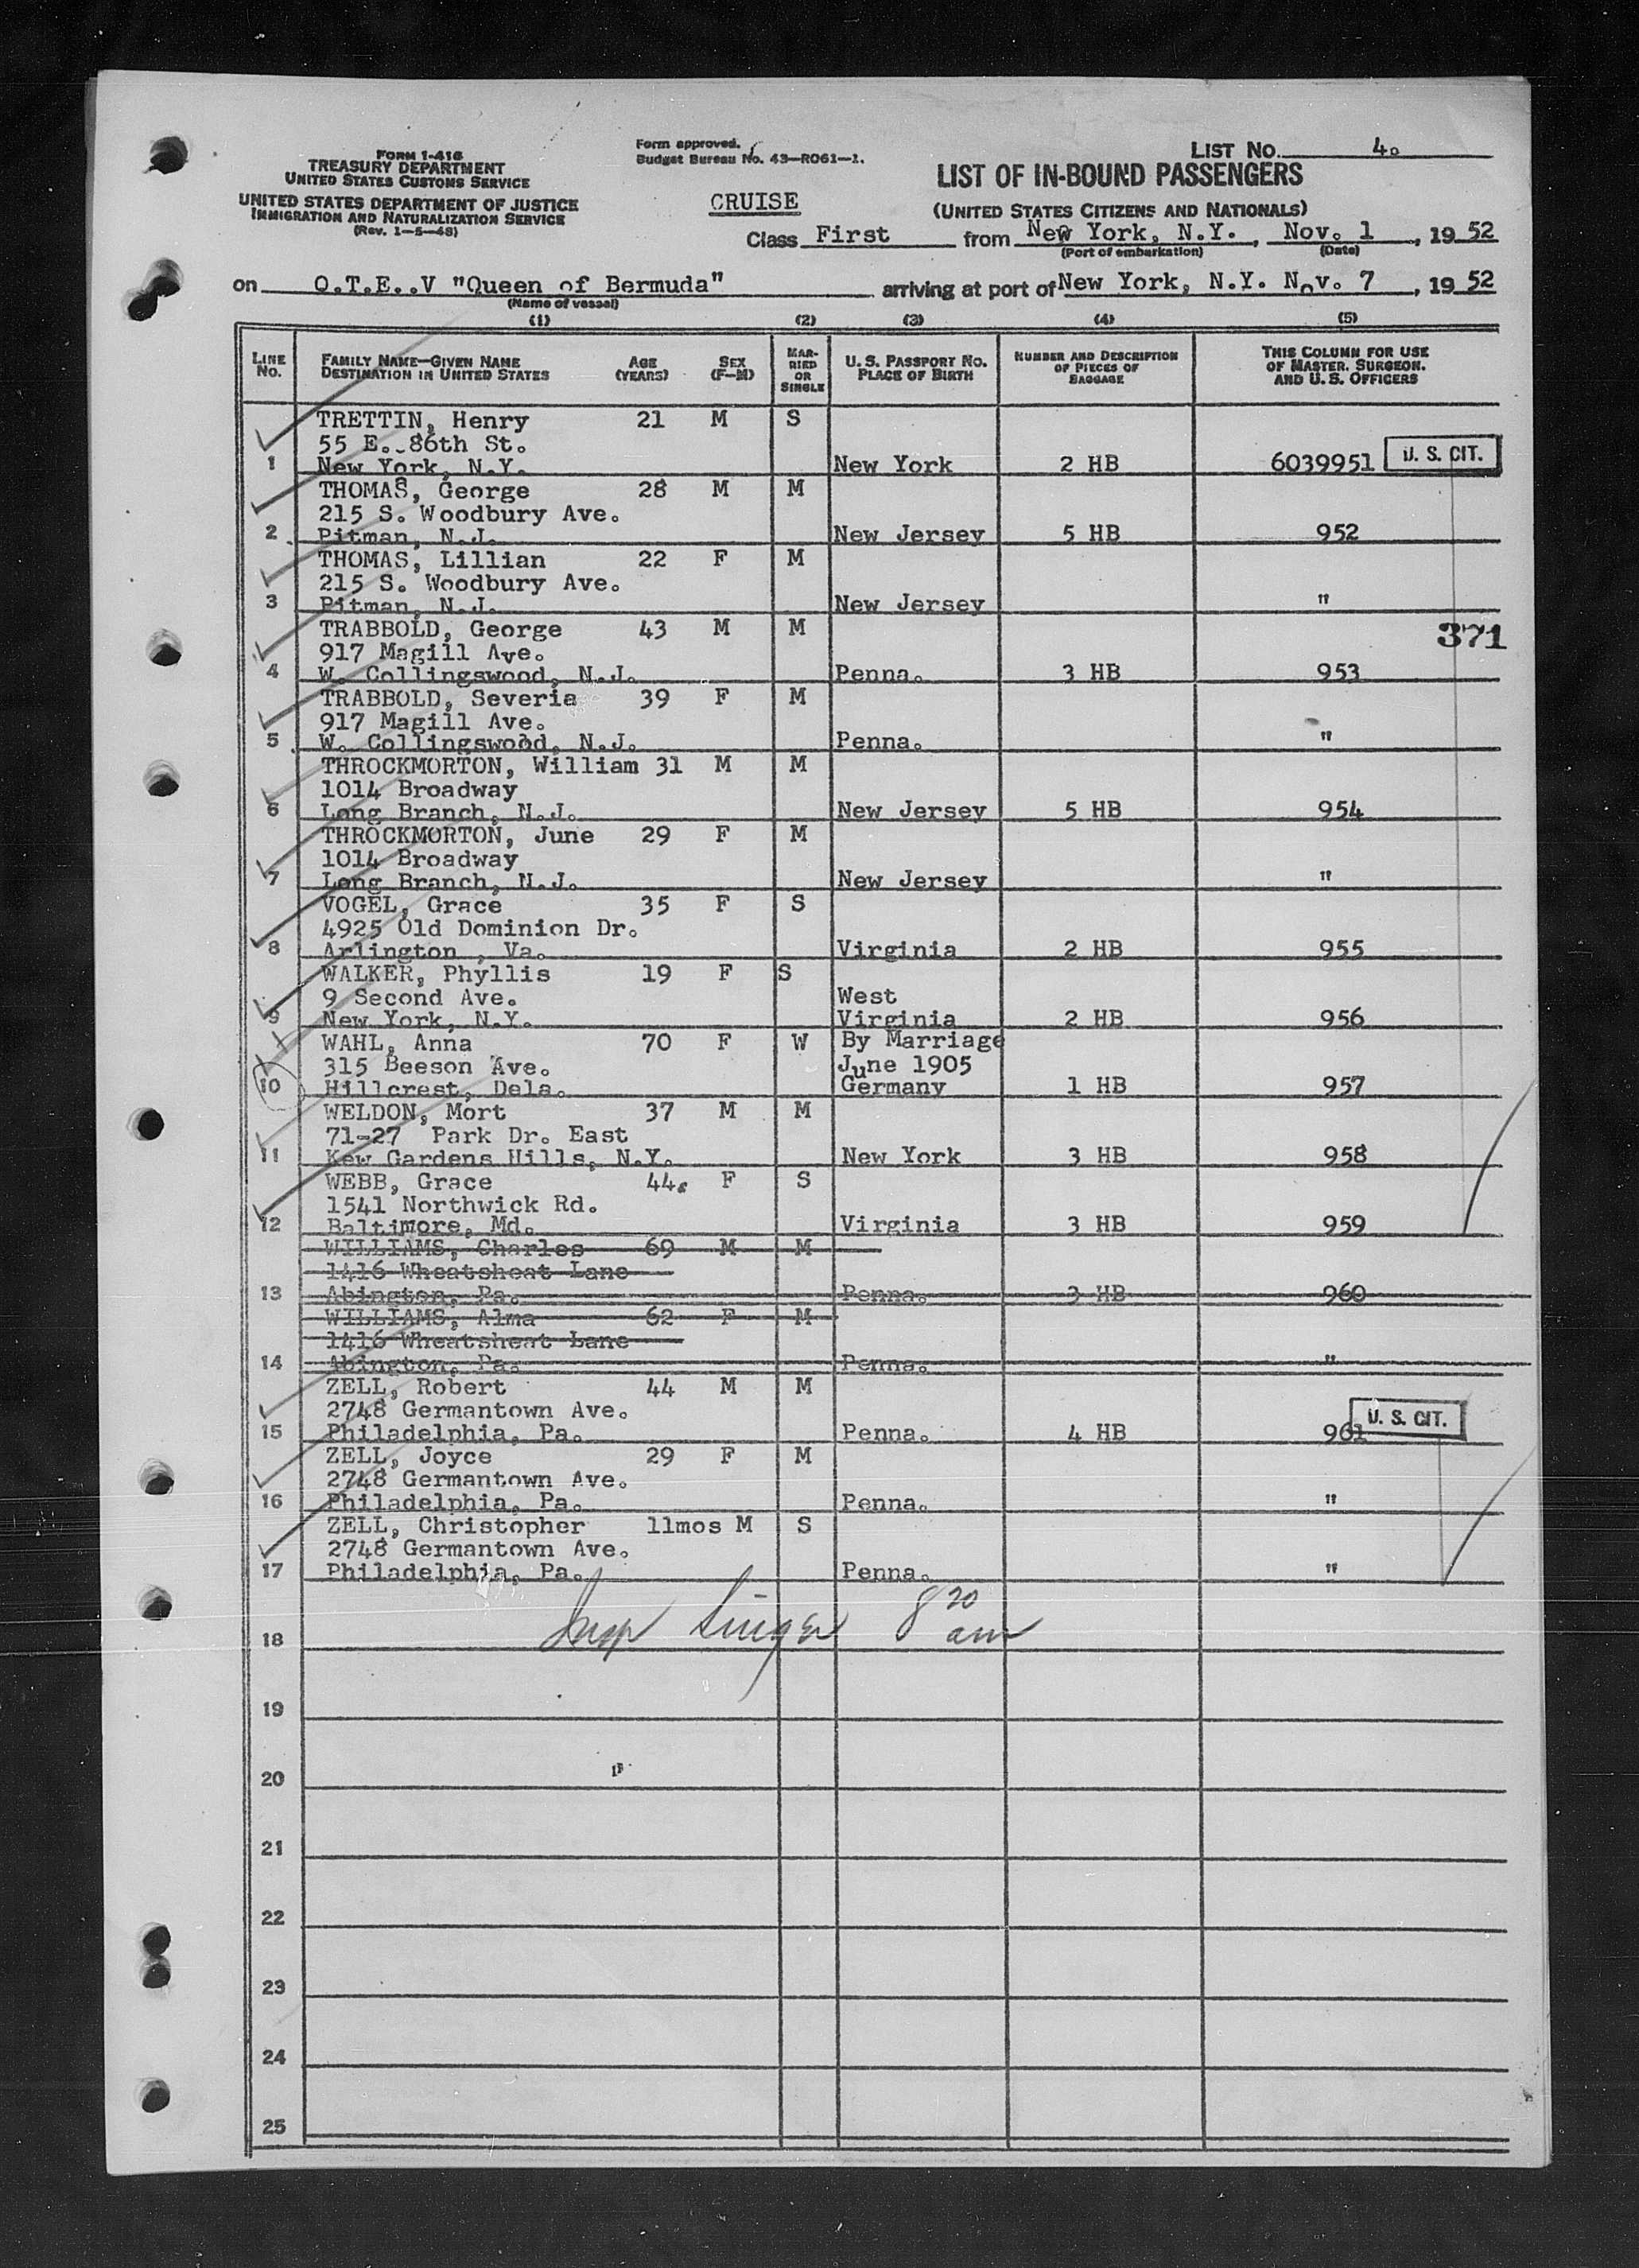 FORM I-416
TREASURY DEPARTMENT
UNITED STATES CUSTOMS SERVICE
UNITED STATES DEPARTMENT OF JUSTICE
IMMIGRATION AND NATURALIZATION SERVICE
(Rev. 1-5-48)
Form approved.
Budget Bureau No. 43-R061-1.
LIST No. 4.
LIST OF IN-BOUND PASSENGERS
(UNITED STATES CITIZENS AND NATIONALS)
CRUISE
Class First from New York, N.Y., Nov. 1, 1952
(Port of embarkation) (Date)
on Q.T.E..V "Queen of Bermuda" arriving at port of New York, N.Y. Nov. 7, 1952
(Name of vessel)
(1) (2) (3) (4) (5)
LINE No. FAMILY NAME—GIVEN NAME DESTINATION IN UNITED STATES AGE (YEARS) SEX (F-M) MARRIED OR SINGLE U. S. PASSPORT NO. PLACE OF BIRTH NUMBER AND DESCRIPTION OF PIECES OF BAGGAGE THIS COLUMN FOR USE OF MASTER, SURGEON, AND U. S. OFFICERS
TRETTIN, Henry 21 M S
55 E. 86th St.
1 New York, N.Y. New York 2 HB 6039951 U. S. CIT.
THOMAS, George 28 M M
215 S. Woodbury Ave.
2 Pitman, N.J. New Jersey 5 HB 952
THOMAS, Lillian 22 F M
215 S. Woodbury Ave.
3 Pitman, N.J. New Jersey "
TRABBOLD, George 43 M M 371
917 Magill Ave.
4 W. Collingswood, N.J. Penna. 3 HB 953
TRABBOLD, Severia 39 F M
917 Magill Ave.
5 W. Collingswood, N.J. Penna. "
THROCKMORTON, William 31 M M
1014 Broadway
6 Long Branch, N.J. New Jersey 5 HB 954
THROCKMORTON, June 29 F M
1014 Broadway
7 Long Branch, N.J. New Jersey "
VOGEL, Grace 35 F S
4925 Old Dominion Dr.
8 Arlington , Va. Virginia 2 HB 955
WALKER, Phyllis 19 F S
9 Second Ave. West
9 New York, N.Y. Virginia 2 HB 956
WAHL, Anna 70 F W By Marriage
315 Beeson Ave. June 1905
10 Hillcrest, Dela. Germany 1 HB 957
WELDON, Mort 37 M M
71-27 Park Dr. East
11 Kew Gardens Hills, N.Y. New York 3 HB 958
WEBB, Grace 44 F S
1541 Northwick Rd.
12 Baltimore, Md. Virginia 3 HB 959
WILLIAMS, Charles 69 M M
1416 Wheatsheat Lane
13 Abington, Pa. Penna. 3 HB 960
WILLIAMS, Alma 62 F M
1416 Wheatsheat Lane
14 Abington, Pa. Penna. "
ZELL, Robert 44 M M
2748 Germantown Ave. U. S. CIT.
15 Philadelphia, Pa. Penna. 4 HB 961
ZELL, Joyce 29 F M
2748 Germantown Ave.
16 Philadelphia, Pa. Penna. "
ZELL, Christopher 11mos M S
2748 Germantown Ave.
17 Philadelphia, Pa. Penna. "
Insp Singer 8 20 am
18
19
20
21
22
23
24
25